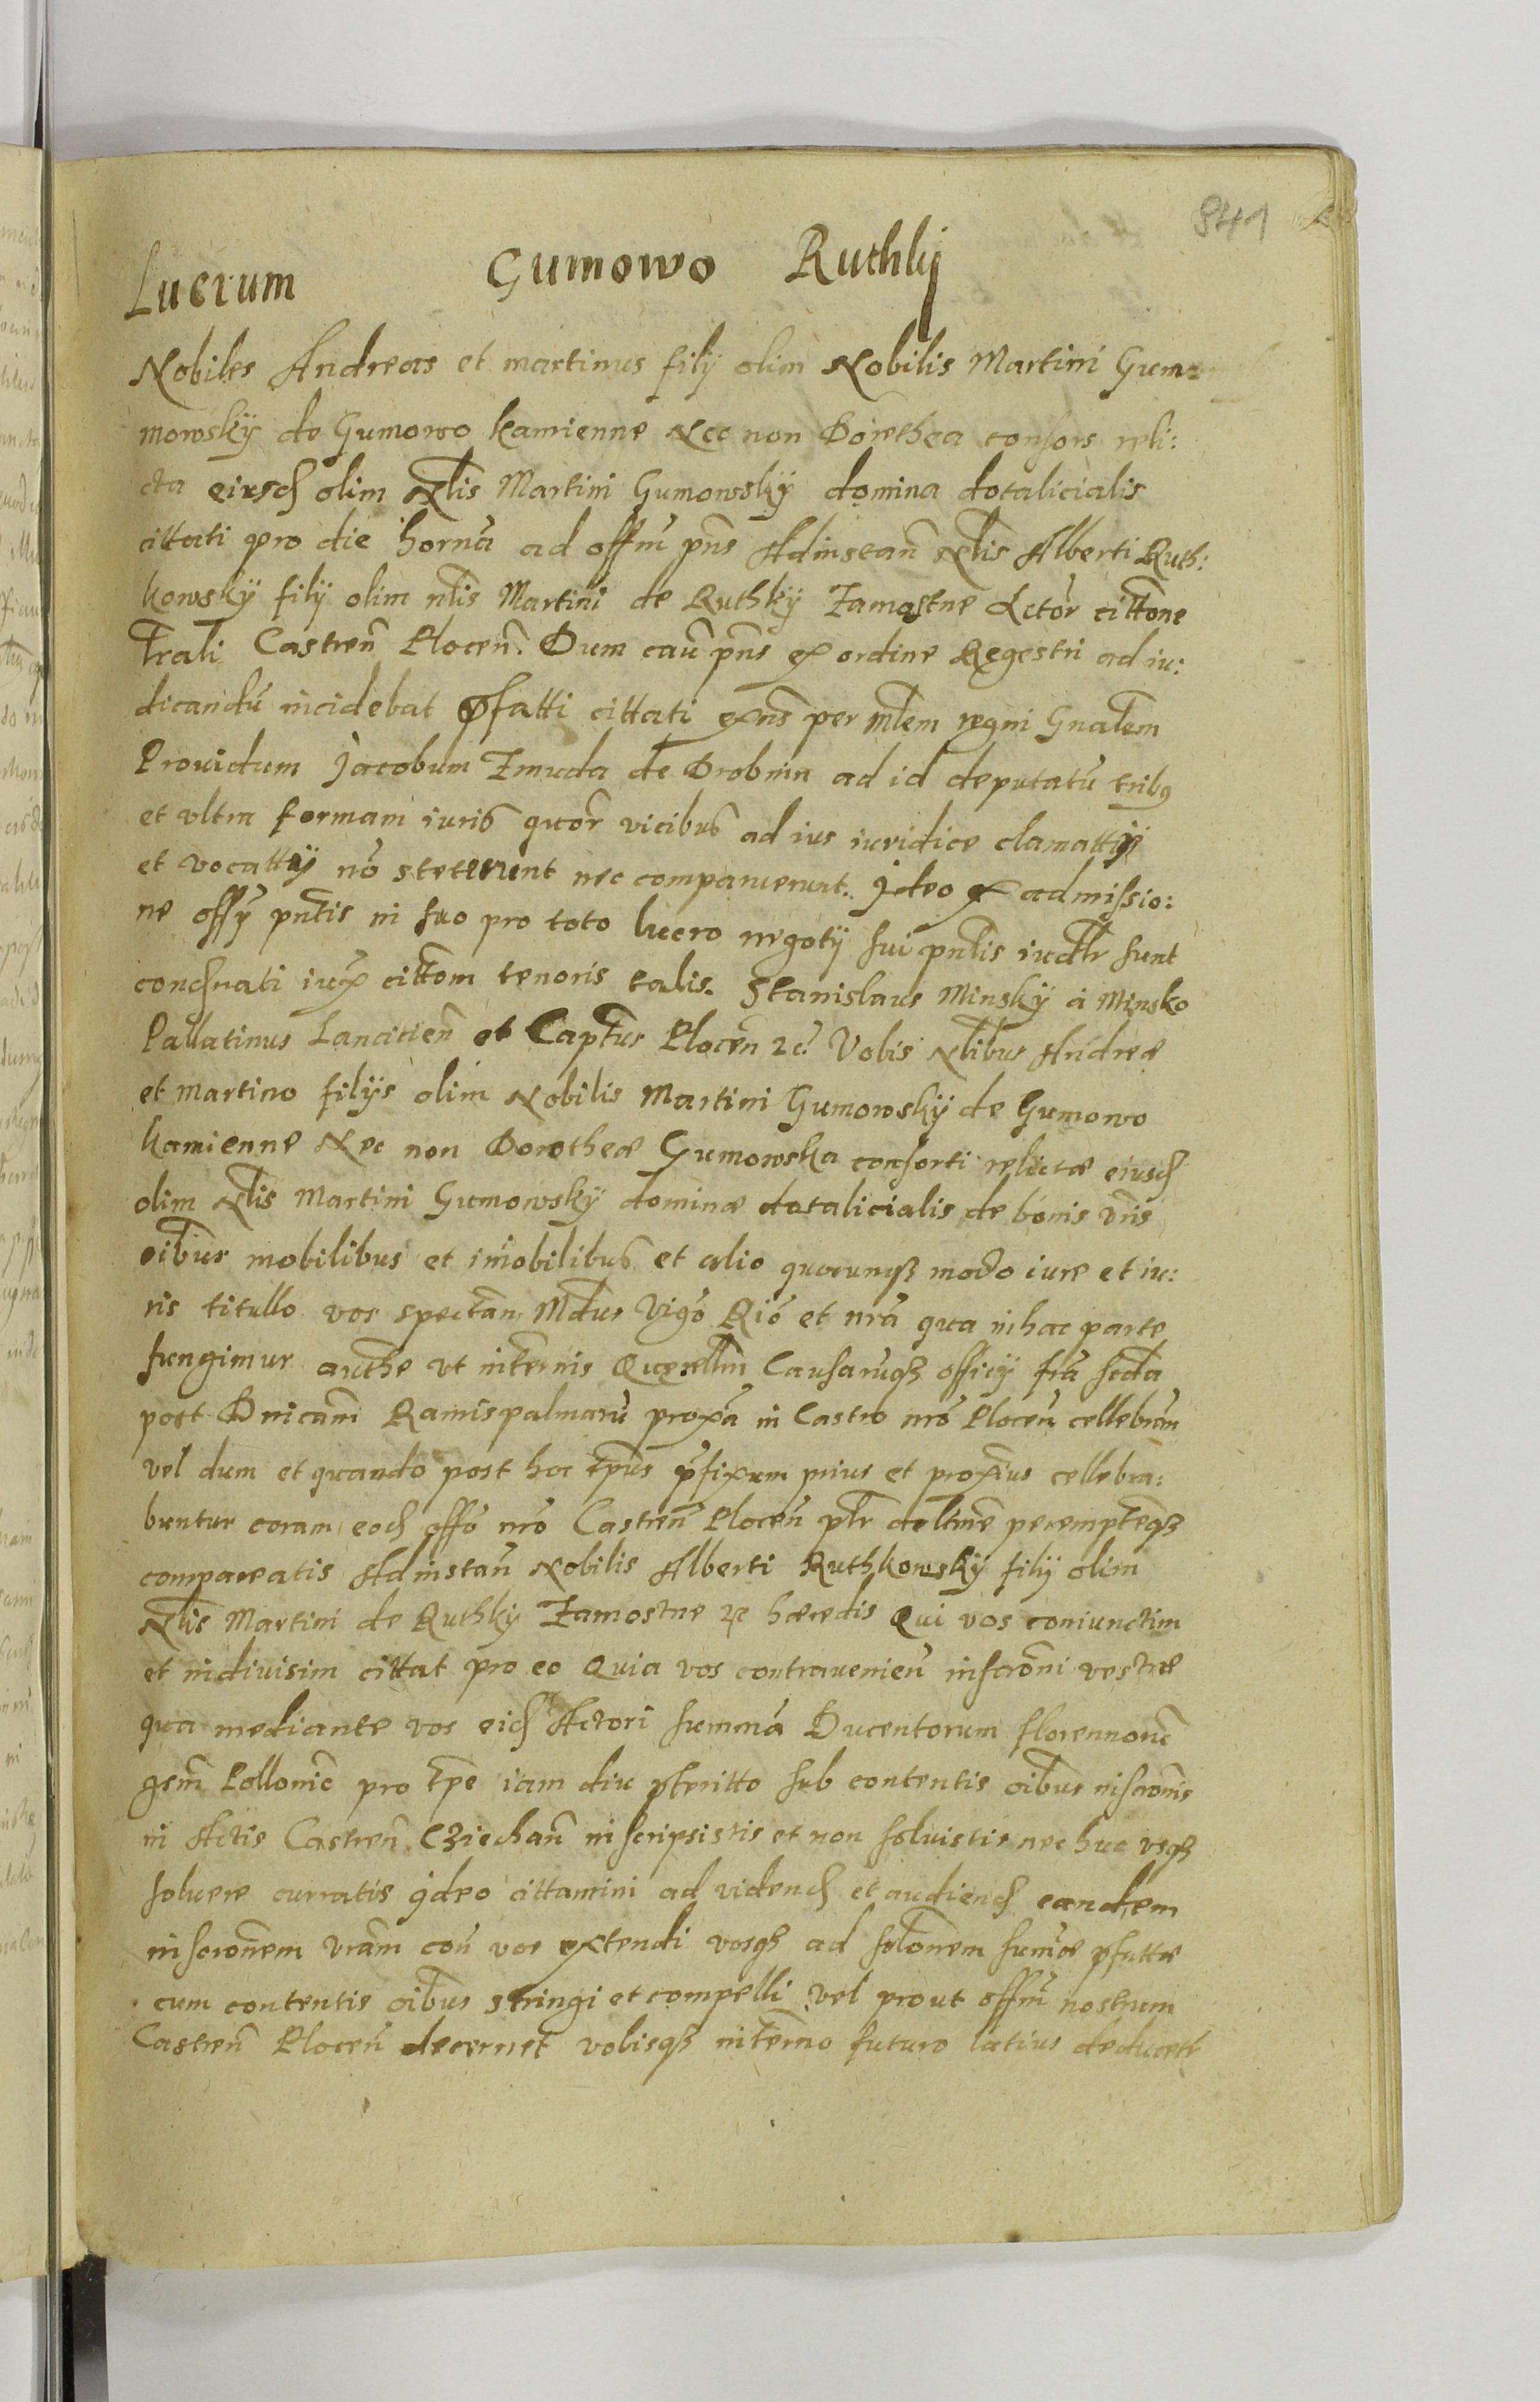 841
Lucrum Gumowo Ruthky
Nobiles Andreas et martinus filÿ olim Nobilis Martini Gumo
mowskÿ de Gumowo kamienne Nec non Dorothea consors reli:
cta eiusd olim Nlis Martini Gumowskÿ domina dotalicialis
cittati pro die horna ad offm pns Adinstan Nlis Alberti Ruth:
kowskÿ filÿ olim nlis Martini de Ruthkÿ Zamostne Actor cittone
trali Castren Plocen. Dum cau pns ex ordine Regestri ad iu:
dicandu incidebat pfatti cittati exns per mlem regni Gnalem
Prouidum Jacobum Zmuda de Drobnin ad id deputatu tribus
et vltra formam iuris quor vicibus ad ius iuridice clamattÿ
et vocattÿ no steterunt nec comparuerunt. Ideo ex admissio:
ne offÿ pntis in suo pro toto lucro negotÿ sui pntis iudlr sunt
condnati iux cittom tenoris talis. Stanislaus Minskÿ a Minsko
Pallatinus Lancitien et Captus Plocen 2c. Vobis Nlibus Andreæ
et Martino filÿs olim Nobilis Martini Gumowskÿ de Gumowo
kamienne Nec non Dorotheæ Gumowska consorti relictæ eiusd
olim Nlis Martini Gumowskÿ dominæ dotalicialis de bonis vris
oibus mobilibus et imobilibus et alio quocunq modo iure et iu:
ris titullo vos spectan Mdus vigo Rio et nra qua in hac parte
fungimur authe vt in ternis Querellm Causaruq officÿ fria scda
post Dnicam Ramispalmaru proxa in Castro nro Plocen cellebran
vel dum et quando post hoc tpus pfixum prius et proxius cellebra:
buntur coram eod offo nro Castren Plocen plr perempteq
compareatis Adinstan Nobilis Alberti Ruthkowskÿ filÿ olim
Nlis Martini de Ruthkÿ Zamostne 2c hæredis Qui vos coniunctim
et indiuisim cittat pro eo Quia vos contrauenien inscroni vestræ
qua mediante vos eid Actori summa Ducentorum florennoru
gsm Pollonic pro tpe iam diu pteritto sub contentis oibus inscronis
in Actis Castren Cziechan inscripsistis et non soluistis nec huc vsq
soluere curratis ideo cittamini ad vidend et audiend eandem
inscronem vram con vos extendi vosq ad solonem sumæ pfattæ
cum contentis oibus stringi et compelli vel prout offm nostrum
Castren Plocen decernet vobisq in termo futuro latius deducetr